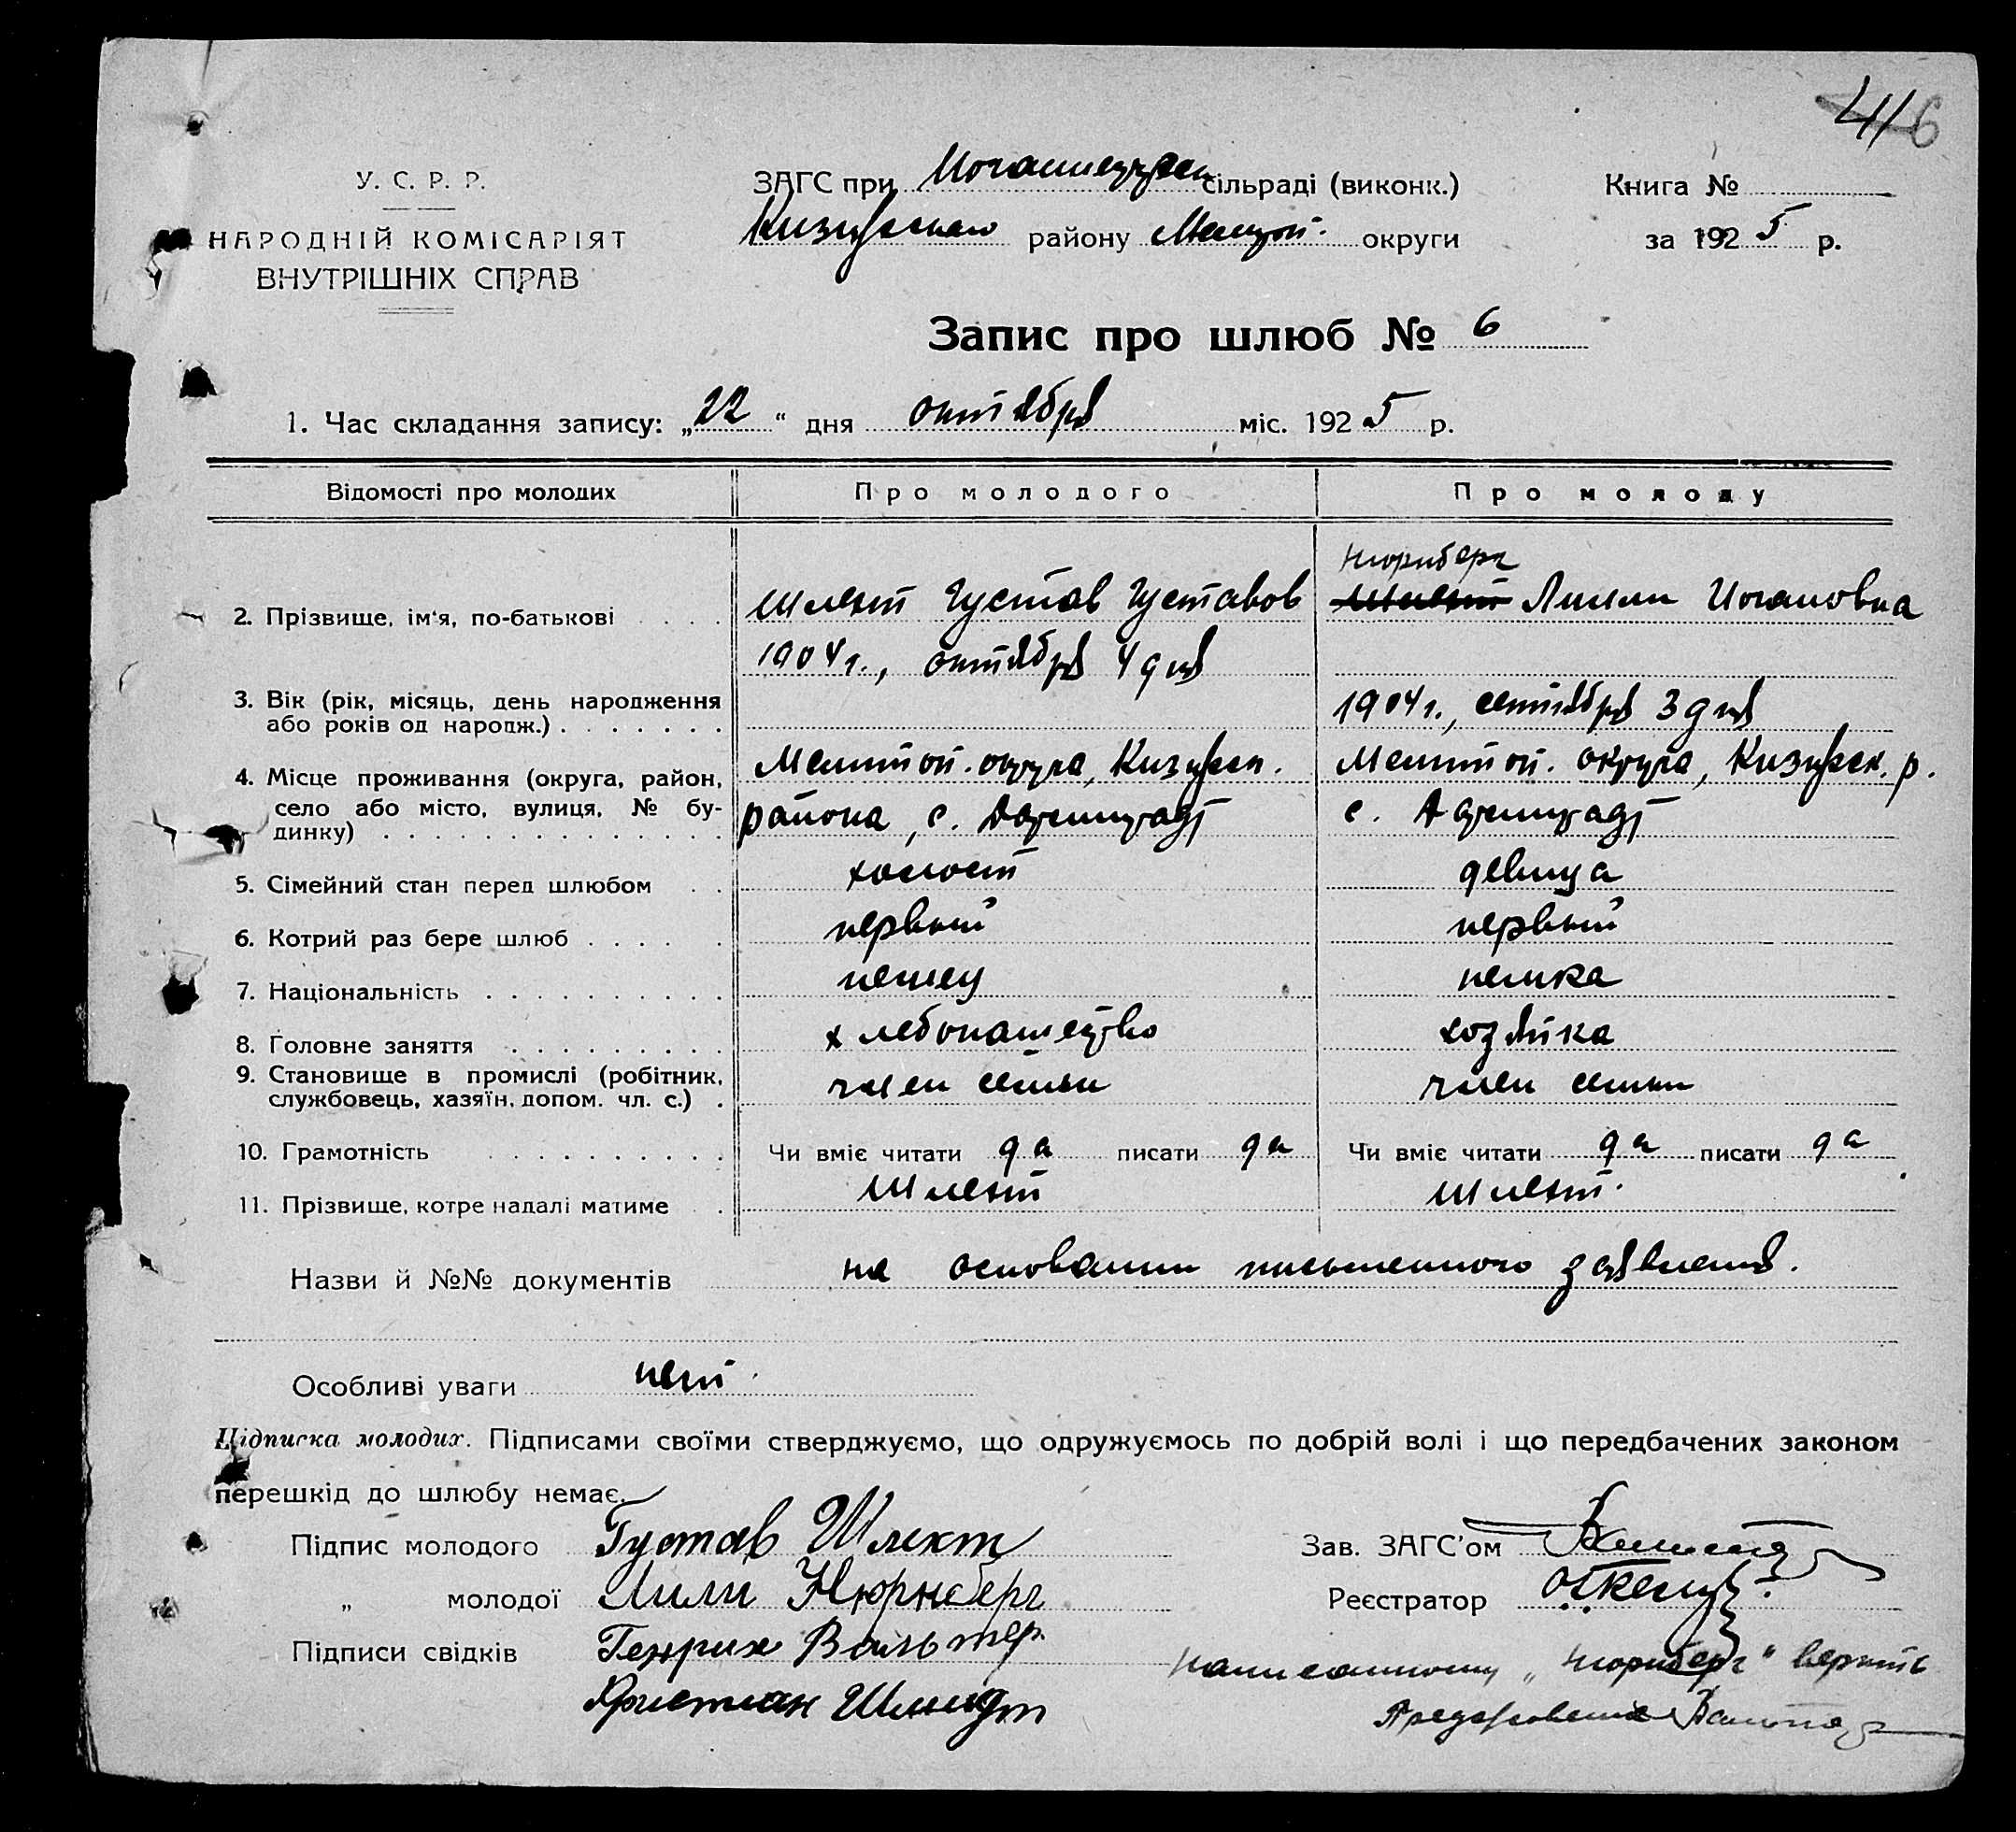 416
У. С. Р. Р.
НАРОДНІЙ КОМІСАРІЯТ
ВНУТРІШНІХ СПРАВ
ЗАГС при сільраді (виконк.)
району округи
Книга №
за 1925 р.
Запис про шлюб № 6
1. Час складання запису: „22“ дня октября міс. 1925 р.
Відомості про молодих
Про молодого
Про молоду
2. Прізвище, ім‘я, по-батькові
Шлехт Густав Густавов
Нюрнберг
Шлехт Лилли Иогановна
3. Вік (рік, місяць, день народження
або років од народж.)
1904 г., октября 4 дня
1904 г., сентября 3 дня
4. Місце проживання (округа, район,
село або місто, вулиця, № бу-
динку)
Мелитоп. округа, Кизиярск.
района, с. Дармштадт
Мелитоп. округа, Кизиярск. р.
с. Дармштадт
5. Сімейний стан перед шлюбом
холост
девица
6. Котрий раз бере шлюб
первый
первый
7. Національність
немец
немка
8. Головне заняття
хлебопашество
хозяйка
9. Становище в промислі (робітник,
службовець, хазяїн, допом. чл. с.)
член семьи
член семьи
10. Грамотність
Чи вміє читати да писати да
Чи вміє читати да писати да
11. Прізвище, котре надалі матиме
Шлехт
Шлехт.
Назви й №№ документів на основании письменного заявления.
Особливі уваги нет.
Підписка молодих. Підписами своїми стверджуємо, що одружуємось по добрій волі і що передбачених законом
перешкід до шлюбу немає.
Підпис молодого Густав Шлехт
„ молодої Лили Нюрнберг
Підписи свідків Генрих Вальтер.
Христиан Шмидт
Зав. ЗАГС’ом
Реєстратор
Написанному „Нюрнберг“ верить